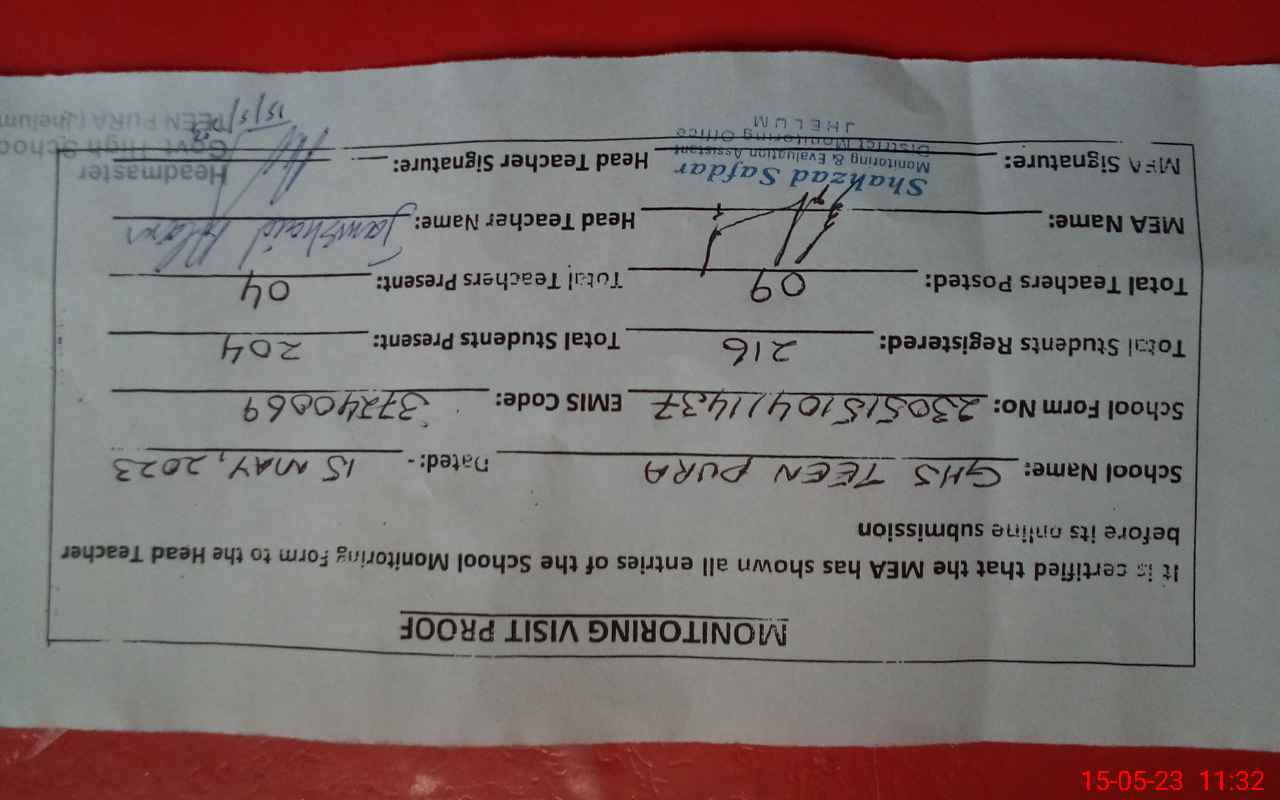 MONITORING VISIT PROOF
It is certified that the MEA has shown all entries of the School Monitoring Form to the Head Teacher
before its online submission
School Name: GHS TEEN PURA Dated:- 15 MAY, 2023
School Form No: 230515104111437 EMIS Code: 37240069
Total Students Registered: 216 Total Students Present: 204
Total Teachers Posted: 09 Total Teachers Present: 04
MEA Name: Head Teacher Name: Jamshaid
MEA Signature: Head Teacher Signature:
Shahzad Safdar
Monitoring & Evaluation Assistant
District Monitoring Office
JHELUM
Headmaster
Govt. High School
TEEN PURA (Jhelum
15/5/23
15-05-23 11:32